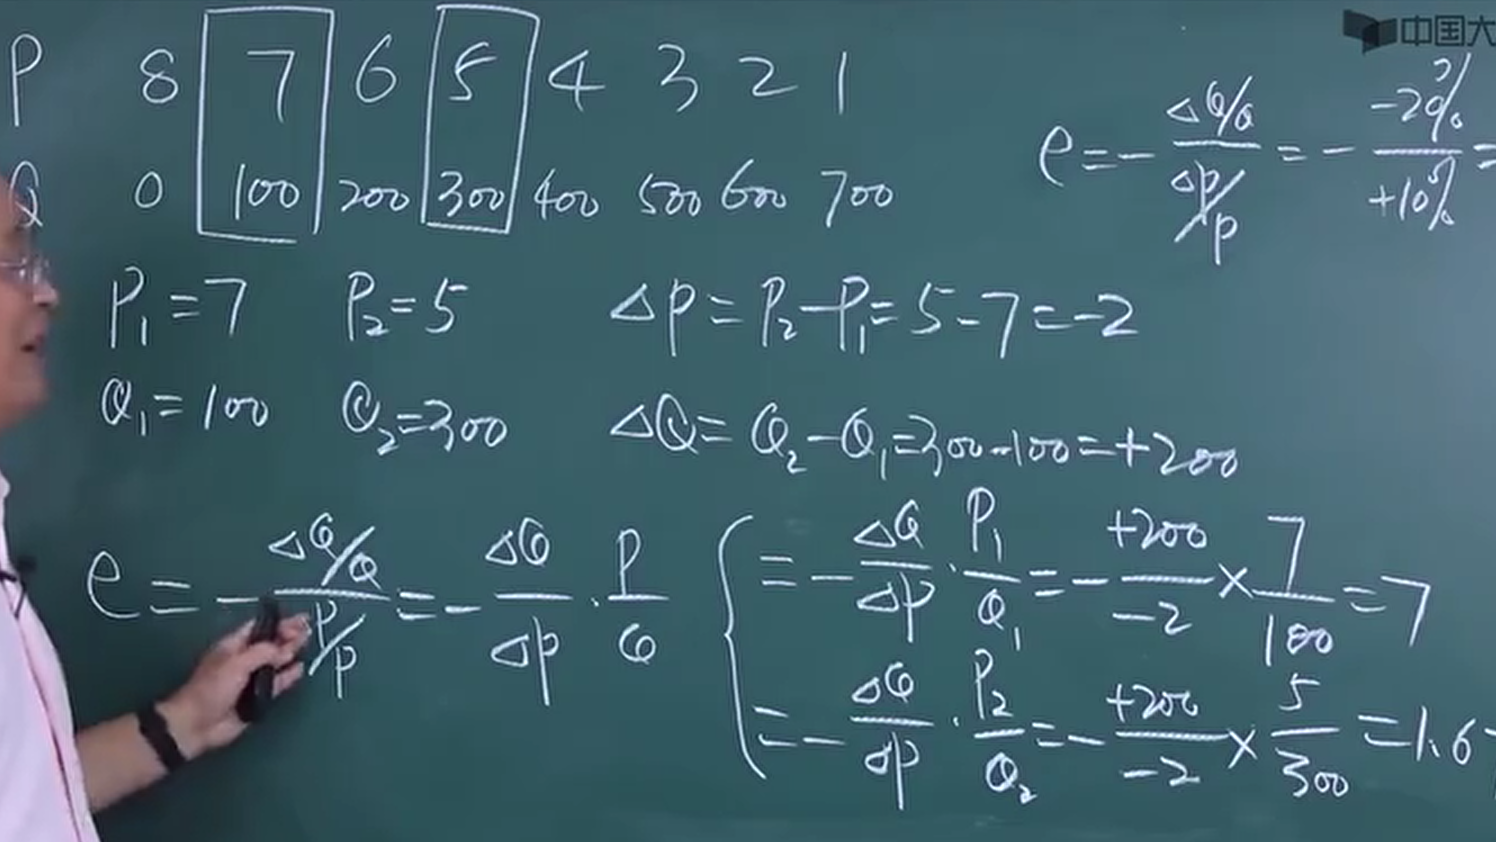 中国大
P 8 7 6 5 4 3 2 1
Q 0 100 200 300 400 500 600 700
e = - ΔQ/Q / ΔP/P = - -2% / +10% =
P₁ = 7 P₂ = 5 ΔP = P₂ - P₁ = 5 - 7 = -2
Q₁ = 100 Q₂ = 300 ΔQ = Q₂ - Q₁ = 300 - 100 = +200
e = - ΔQ/Q / P/P = - ΔQ/ΔP · P/Q
{ = - ΔQ/ΔP · P₁/Q₁ = - +200/-2 × 7/100 = 7
= - ΔQ/ΔP · P₂/Q₂ = - +200/-2 × 5/300 = 1.6